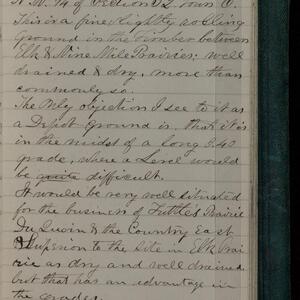 N.W. 1/4 of Section 32, Town 6.
This is a fine, lightly rolling
Ground in the timber between
Elk & Nine Mile Prairies; well
drained & dry, more than
commonly so.
The only objection I see to it as
a Depot Ground is, that it is
in the midst of a long 1.40
grade, where a Level would
be quite difficult.
It would be very well situated
for the business of Tuttle's Prairie
Du Quoin & the Country East
Superior to the Site in Elk Prai
rie as dry and well drained
but that has an advantage in
the grades.